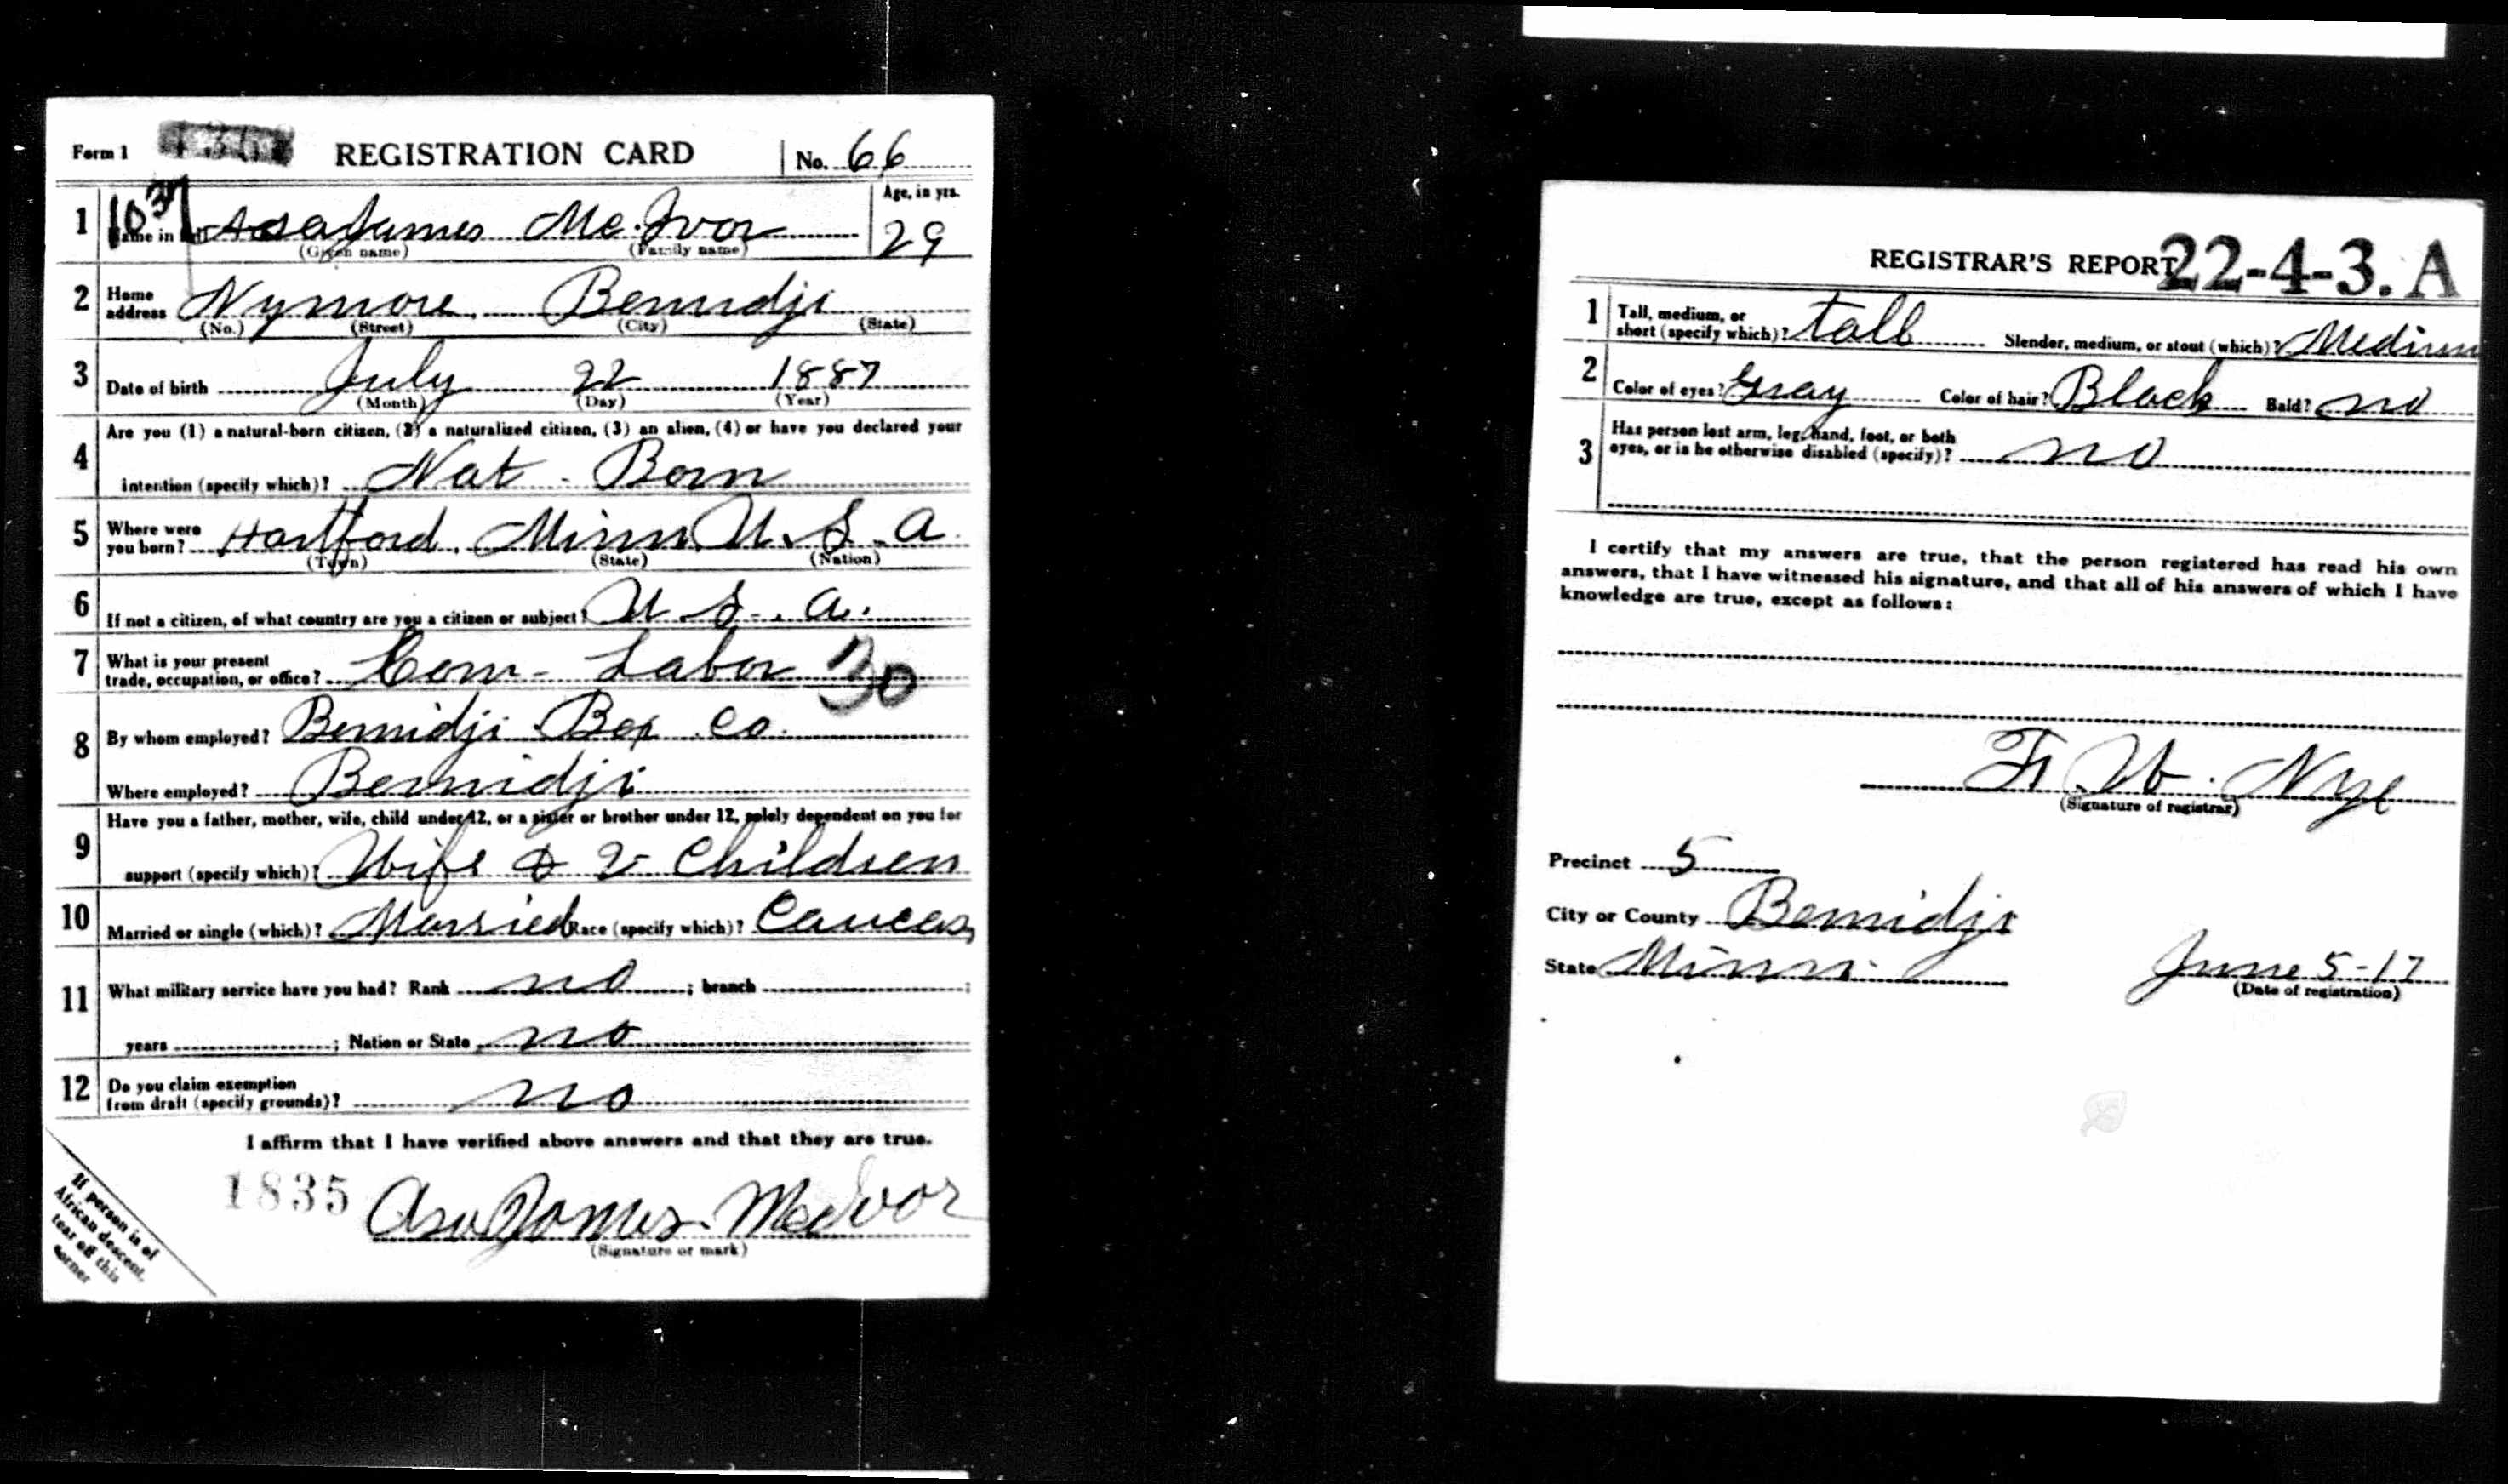 Form 1 REGISTRATION CARD No. 66
1 1037 Name in full Asa James Mc.Ivor Age, in yrs. 29
(Given name) (Family name)
2 Home address Nymore. Bemidji
(No.) (Street) (City) (State)
3 Date of birth July 22 1887
(Month) (Day) (Year)
4 Are you (1) a natural-born citizen, (2) a naturalized citizen, (3) an alien, (4) or have you declared your
intention (specify which)? Nat - Born
5 Where were you born? Hartford. Minn. U.S.A.
(Town) (State) (Nation)
6 If not a citizen, of what country are you a citizen or subject? U.S.A.
7 What is your present trade, occupation, or office? Com - Labor 30
8 By whom employed? Bemidji Box Co.
Where employed? Bemidji
9 Have you a father, mother, wife, child under 12, or a sister or brother under 12, solely dependent on you for
support (specify which)? Wife & 2 Children
10 Married or single (which)? Married Race (specify which)? Caucas
11 What military service have you had? Rank no ; branch ;
years ; Nation or State no
12 Do you claim exemption from draft (specify grounds)? no
I affirm that I have verified above answers and that they are true.
1835 Asa James McIvor
(Signature or mark)
If person is of
African descent,
tear off this
corner
REGISTRAR'S REPORT 22-4-3. A
1 Tall, medium, or short (specify which)? tall Slender, medium, or stout (which)? Medium
2 Color of eyes? Gray Color of hair? Black Bald? no
3 Has person lost arm, leg, hand, foot, or both
eyes, or is he otherwise disabled (specify)? no
I certify that my answers are true, that the person registered has read his own
answers, that I have witnessed his signature, and that all of his answers of which I have
knowledge are true, except as follows:
F. W. Nye
(Signature of registrar)
Precinct 5
City or County Bemidji
State Minn. June 5-17
(Date of registration)